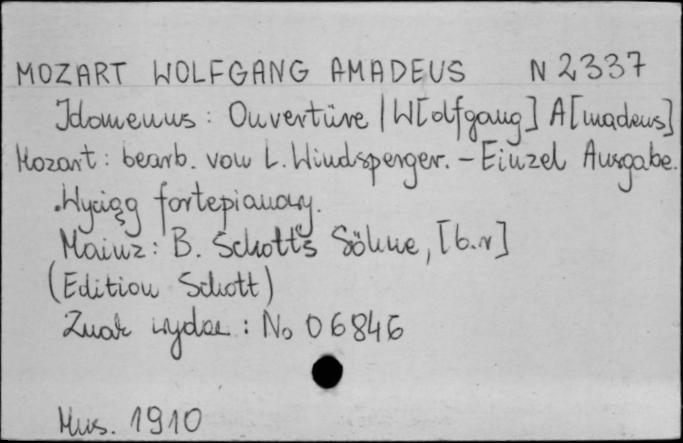 MOZART WOLFGANG AMADEUS N 2337
Idomeneus : Ouvertüre / W[olfgang] A[madeus]
Mozart : bearb. von L. Windsperger. - Einzel Ausgabe.
.Wyciąg fortepianowy.
Mainz : B. Schott's Söhne, [b.r]
(Edition Schott)
Znak wydaw : No 06846
Mus. 1910